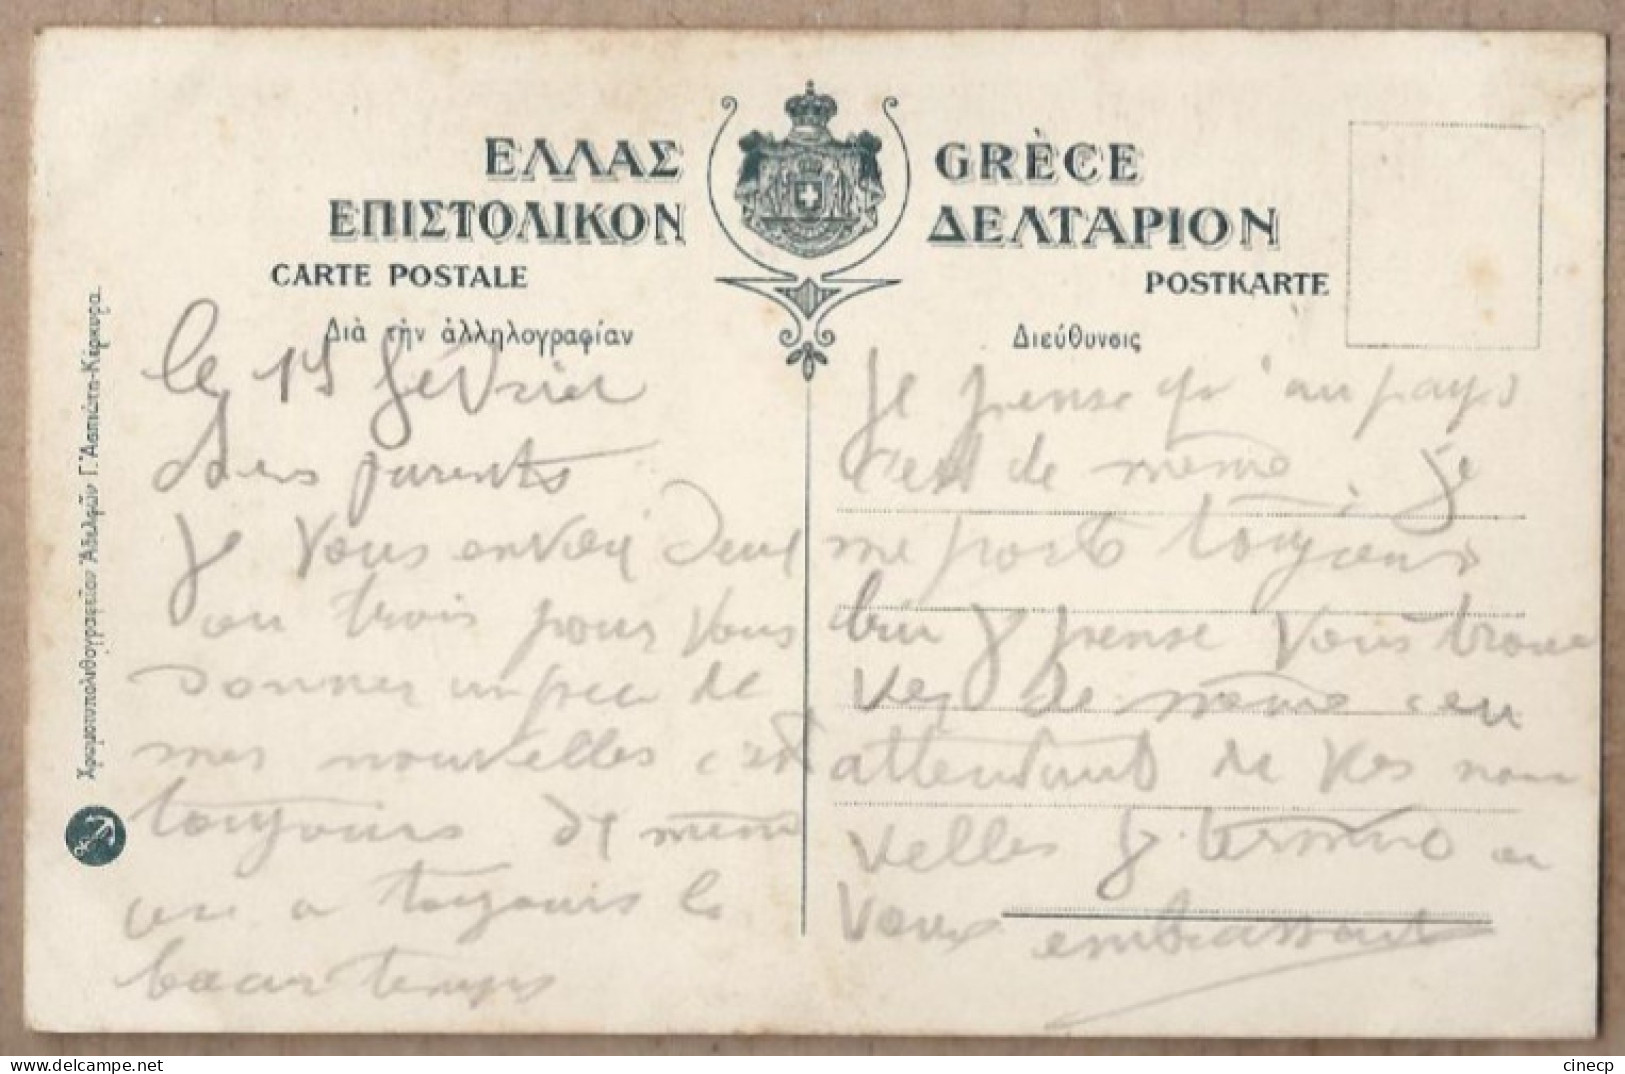 ΕΛΛΑΣ GRÈCE
ΕΠΙΣΤΟΛΙΚΟΝ ΔΕΛΤΑΡΙΟΝ
CARTE POSTALE POSTKARTE
Διὰ τὴν ἀλληλογραφίαν
Διεύθυνσις
Χρωμοτυπολιθογραφεῖον Ἀδελφῶν Γ. Ἀσπιώτη-Κέρκυρα.
le 15 février
chers parents
je vous envoi deux
ou trois pour vous
donner un peu de
mes nouvelles c'est
toujours de meme
on a toujours le
beau temps
je pense qu'au pays
c'est de meme, je
me porte toujours
bien je pense vous trou
vez de meme en
attendant de vos nou
velles je termine en
vous embrassant
cinecp